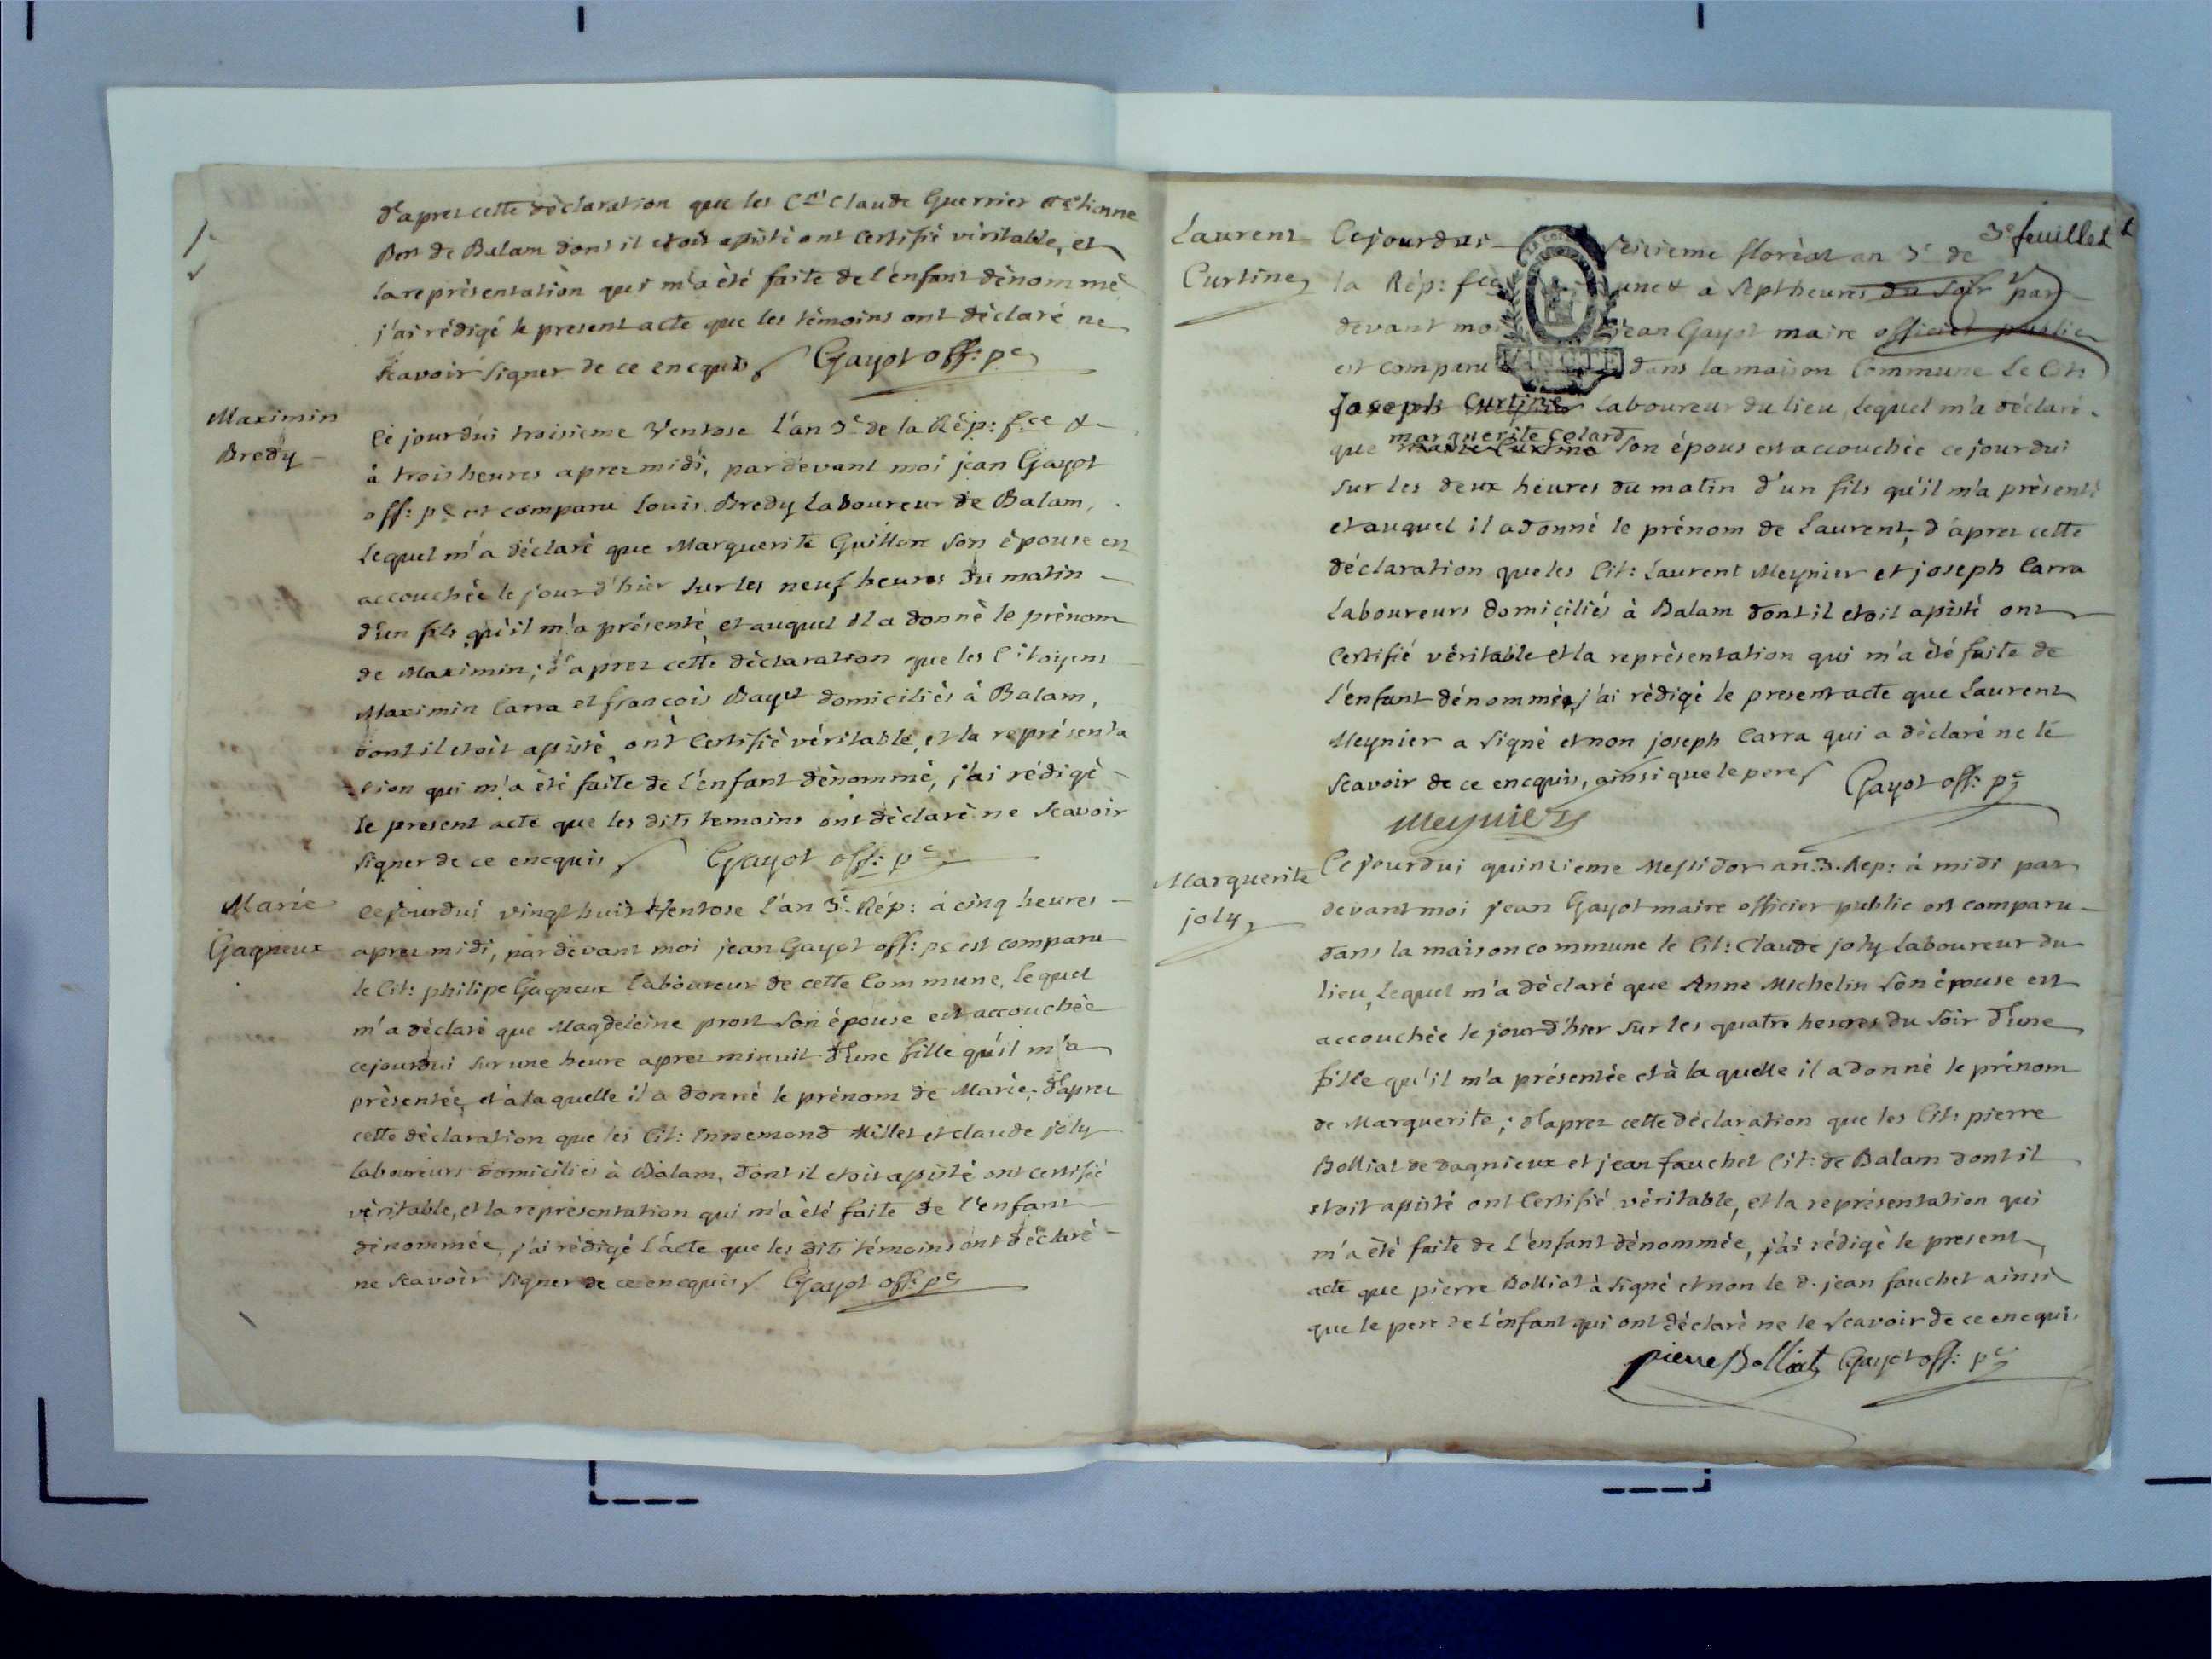 d'aprez cette déclaration que les Cens Claude Guerrier et etienne
Bon de Balam dont il etoit assisté ont Certifié véritable, et
la représentation qui m'a été faite de l'enfant dénommé
j'ai rédigé le present acte que les témoins ont déclaré ne
scavoir signer de ce encquis Gayot off: pc
Maximin
Bredy
Ce jourdui troisieme Ventose l'an 3e de la Rép: fce &
à trois heures aprez midi, pardevant moi jean Gayot
off: pc est comparu Louis Bredy Laboureur de Balam,
Lequel m'a déclaré que Marguerite Guillon son épouse est
accouchée le jour d'hier sur les neuf heures du matin
d'un fils qu'il m'a présenté et auquel il a donné le prénom
de Maximin; d'aprez cette déclaration que les Citoyens
Maximin Carra et françois Bayet domiciliés à Balam,
dont il etoit assisté, ont Certifié véritable, et la représenta
tion qui m'a été faite de l'enfant dénommé, j'ai rédigé
le present acte que les dits temoins ont déclaré ne scavoir
signer de ce encquis Gayot off: pc
Marie
Gagneux
Cejourdui vingt huit Ventose l'an 3e. Rép: à cinq heures
aprez midi, pardevant moi jean Gayot off: pc est comparu
le Cit: philipe Gagneux Laboureur de cette Commune, Lequel
m'a déclaré que Magdeleine prost son épouse est accouchée
cejourdui sur une heure aprez minuit d'une fille qu'il m'a
présentée, et à laquelle il a donné le prénom de Marie; d'aprez
cette déclaration que les Cit: Ennemond Millet et claude joly
laboureurs domiciliés à Balam, dont il etoit assisté ont certifié
véritable, et la représentation qui m'a été faite de l'enfant
dénommée, j'ai rédigé l'acte que les dits témoins ont déclaré
ne scavoir signer de ce encquis Gayot off: pc
3e feuillet
Laurent
Curtine
Cejourdui seizieme floréal an 3e de
la Rép: fce une & à sept heures du soir par
devant moi jean Gayot maire officier public
est comparu dans la maison Commune Le Cit:
Joseph Curtine laboureur du lieu, lequel m'a déclaré
marguerite Colard
que son épous est accouchée cejourdui
sur les deux heures du matin d'un fils qu'il m'a présenté
et auquel il a donné le prénom de Laurent; d'aprez cette
déclaration que les Cit: Laurent Meynier et joseph Carra
Laboureurs domiciliés à Balam dont il etoit assisté ont
Certifié véritable et la représentation qui m'a été faite de
l'enfant dénommée, j'ai rédigé le present acte que Laurent
Meynier a signé et non joseph Carra qui a déclaré ne le
scavoir de ce encquis, ainsi que le pere Gayot off: pc
Meynier
Marguerite
joly
Cejourdui quinzieme Messidor an 3. Rép: à midi par
devant moi jean Gayot maire officier public est comparu
dans la maison commune le Cit: Claude joly Laboureur du
lieu, Lequel m'a déclaré que Anne Michelin son épouse est
accouchée le jour d'hier sur les quatre heures du soir d'une
fille qu'il m'a présentée et à la quelle il a donné le prénom
de Marguerite; d'aprez cette déclaration que les Cit: pierre
Bolliat de dagnieux et jean fauchet Cit: de Balam dont il
etoit assisté ont Certifié véritable, et la représentation qui
m'a été faite de l'enfant dénommée, j'ai rédigé le present
acte que pierre Bolliat à signé et non le d. jean fauchet ainsi
que le pere de l'enfant qui ont déclaré ne le scavoir de ce encqui.
pierre Bolliat Gayot off: pc